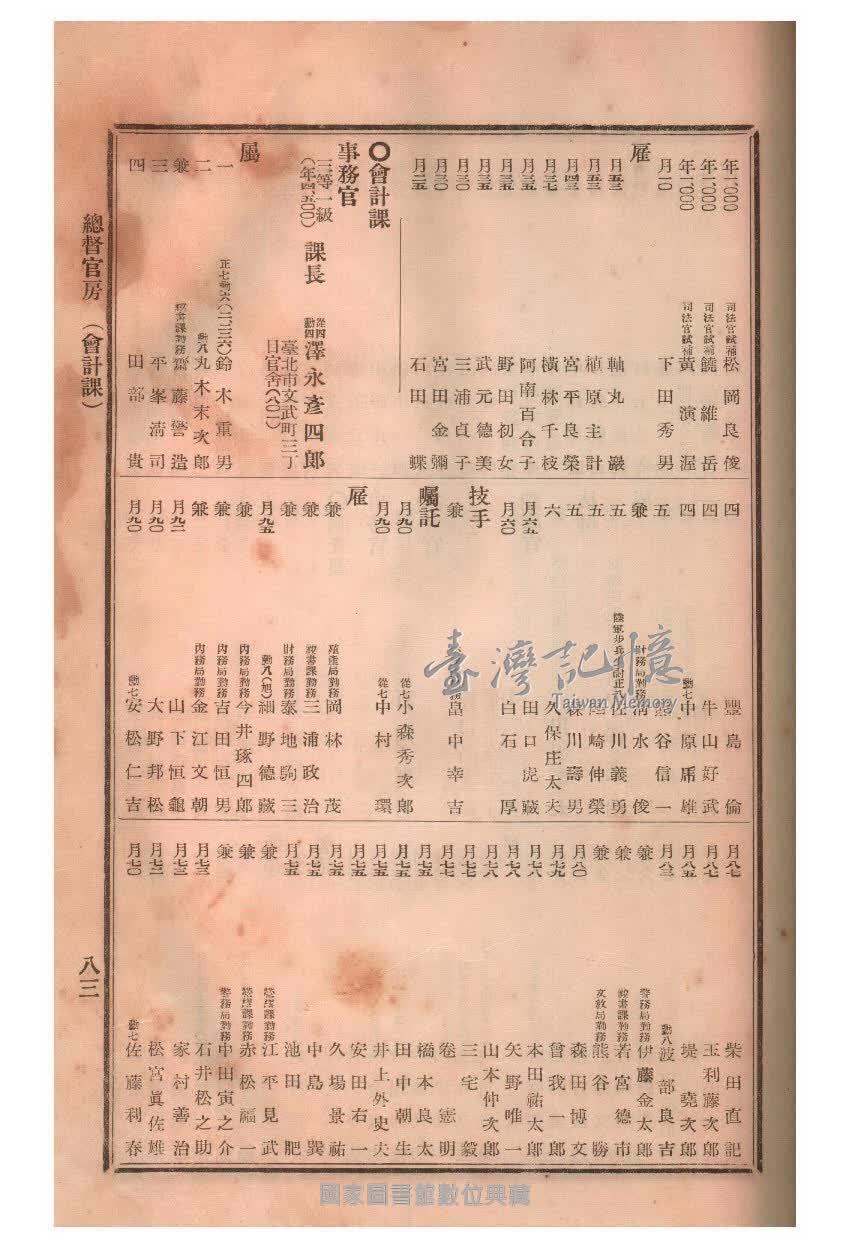 年一、〇〇〇 司法官試補 松岡良俊
年一、〇〇〇 司法官試補 饒維岳
年一、〇〇〇 司法官試補 黃演渥
月一〇 下田秀男
雇
月五三 軸丸巖
月五三 植原主計
月四三 宮平良榮
月三七 橫林千枝
月三五 阿南百合子
月三五 野田初女
月三五 武元德美
月三〇 三浦貞子
月三〇 宮田金彌
月二五 石田蝶
〇會計課
事務官
三等一級
(年四、五〇〇) 課長 從四勳四 澤永彥四郎
臺北市文武町三丁
目官舍(八〇一)
屬
一 正七勳六(二、二三六) 鈴木重男
二 勳八 丸木末次郎
兼 秘書課勤務 齋藤譽造
三 平峯淸司
四 田部貴
四 豐島倫
四 牛山好武
四 勳七 中原雄
五 谷信一
兼 財務局勤務 水俊
五 川義勇
五 崎伸榮
五 森川壽男
六 久保庄太夫
月六五 田口虎藏
月六〇 白石厚
技手
兼 畠中幸吉
囑託
月九〇 從七 小森秀次郎
月九〇 從七 中村環
雇
兼 殖產局勤務 岡林茂
兼 秘書課勤務 三浦政治
兼 財務局勤務 泰地駒三
月九五 勳八(旭) 細野德藏
兼 內務局勤務 今井琢四郎
兼 內務局勤務 吉田恒男
兼 內務局勤務 金江文朝
月九二 山下恒龜
月九〇 大野邦松
月九〇 勳七 安松仁吉
月八七 柴田直記
月八七 玉利藤次郎
月八五 堤堯次郎
月八三 勳八 波部良吉
兼 警務局勤務 伊藤金太郎
兼 秘書課勤務 若宮德市
兼 文敎局勤務 熊谷勝
月八〇 森田博文
月七九 曾我一郎
月七八 本田祐太郎
月七八 矢野唯一
月七八 山本仲次郎
月七七 三宅毅
月七七 卷憲明
月七五 橋本良太
月七五 田中朝生
月七五 井上外史夫
月七五 安田右一
月七五 久場景祐
月七五 中島巽
月七五 池田肥
兼 營繕課勤務 江平見武
兼 營繕課勤務 赤松福一
兼 警務局勤務 中田寅之介
月七三 石井松之助
月七三 家村善治
月七二 松宮眞佐雄
月七〇 勳七 佐藤利春
總督官房(會計課)
八三
臺灣記憶
Taiwan Memory
國家圖書館數位典藏